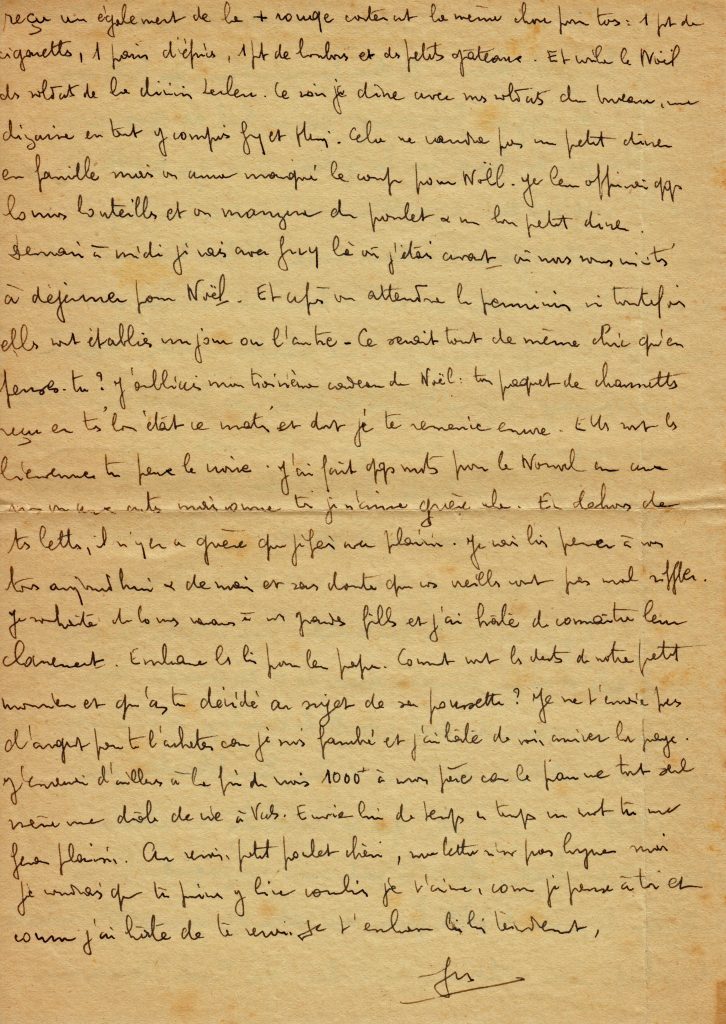 reçu un également de la + rouge contenant la même chose pour tous : 1 pt de
cigarettes, 1 pain d'épices, 1 pt de bonbons et des petits gâteaux. Et voilà le Noël
des soldats de la division Leclerc. Ce soir je dîne avec mes soldats du bureau, une
dizaine en tout y compris Guy et . Cela ne vaudra pas un petit dîner
en famille mais on aura marqué le coup pour Noël. Je leur offrirai qqs
bonnes bouteilles et on mangera du poulet & un bon petit dîner.
Demain à midi je vais avec Guy là où j'étais avant où nous sommes invités
à déjeuner pour Noël. Et après on attendra les permissions si toutefois
elles sont établies un jour ou l'autre - Ce serait tout de même chic qu'en
penses-tu ? J'oubliais mon troisième cadeau de Noël : ton paquet de chaussettes
reçu en très bon état ce matin et dont je te remercie encore. Elles sont les
bienvenues tu peux le croire. J'ai fait qqs mots pour le Nouvel an aux
uns et aux autres mais comme toi je n'aime guère cela. En dehors de
tes lettres, il n'y en a guère que je fais avec plaisir. Je vais bien penser à vous
tous aujourd'hui & demain et sans doute que vos oreilles vont pas mal siffler.
Je souhaite de bonnes vacances à nos grandes filles et j'ai hâte de connaître leur
classement. Embrasse les bien pour leur papa. Comment vont les dents de notre petit
monsieur et qu'as tu décidé au sujet de sa poussette ? Je ne t'envoie pas
d'argent pour te l'acheter car je suis fauché et j'ai hâte de voir arriver la paye.
J'enverrai d'ailleurs à la fin du mois 1000 à mon père car le pauvre tout seul
mène une drôle de vie à Vals. Envoie lui de temps en temps un mot tu me
feras plaisir. Au revoir petit poulet chéri, ma lettre n'est pas longue mais
je voudrais que tu puisses y lire combien je t'aime, comme je pense à toi et
comme j'ai hâte de te revoir. Je t'embrasse bien bien tendrement,